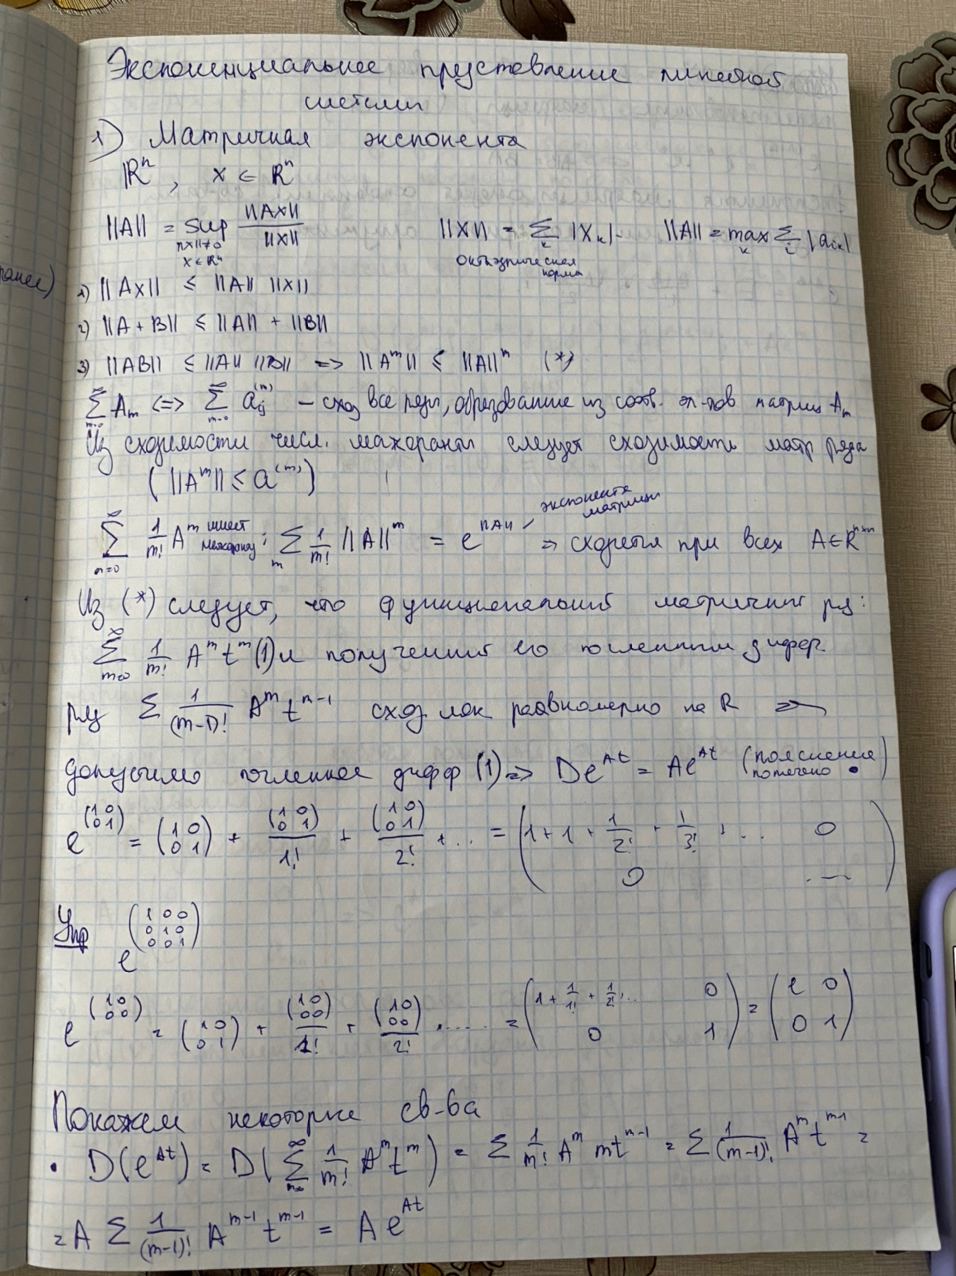 Экспоненциальное представление линейной
системы
1) Матричная экспонента
ℝⁿ, x ∈ ℝⁿ
||A|| = sup_{||x||≠0, x∈ℝⁿ} ||Ax|| / ||x|| ||x|| = Σ_k |x_k| октаэдрическая норма ||A|| = max_k Σ_i |a_{ik}|
1) ||Ax|| ≤ ||A|| ||x||
2) ||A + B|| ≤ ||A|| + ||B||
3) ||AB|| ≤ ||A|| ||B|| => ||A^m|| ≤ ||A||^n (*)
Σ_{m=0}^∞ A_m <=> Σ_{m=0}^∞ a_{ij}^{(m)} – сход все ряды, образованные из соотв. эл-тов матриц A_m
Из сходимости числ. мажоранты следует сходимость матр ряда
(||A^m|| ≤ a^{(m)})
Σ_{m=0}^∞ 1/m! A^m имеет мажоранту: Σ_m 1/m! ||A||^m = e^{||A||} экспонента матрицы => сходится при всех A∈R^{n×n}
Из (*) следует, что функциональный матричный ряд:
Σ_{m=0}^∞ 1/m! A^m t^m (1) и полученный его почленным дифф.
ряд Σ 1/(m-1)! A^m t^{m-1} сход лок равномерно на R =>
допустимо почленное дифф (1) => De^{At} = Ae^{At} (пояснение помечено •)
e^{(1 0; 0 1)} = (1 0; 0 1) + (1 0; 0 1)/1! + (1 0; 0 1)/2! + ... = (1 + 1 + 1/2! + 1/3! + ... 0; 0 ...)
Упр e^{(1 0 0; 0 1 0; 0 0 1)}
e^{(1 0; 0 0)} = (1 0; 0 1) + (1 0; 0 0)/1! + (1 0; 0 0)/2! + .... = (1 + 1/1! + 1/2! ... 0; 0 1) = (e 0; 0 1)
Покажем некоторые св-ва
• D(e^{At}) = D(Σ_{m=0}^∞ 1/m! A^m t^m) = Σ 1/m! A^m m t^{m-1} = Σ 1/(m-1)! A^m t^{m-1} =
= A Σ 1/(m-1)! A^{m-1} t^{m-1} = A e^{At}